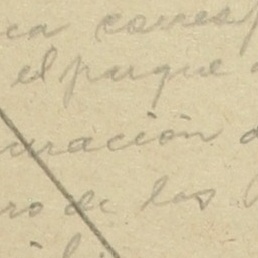 ca corres
el parque
uración
ro de los